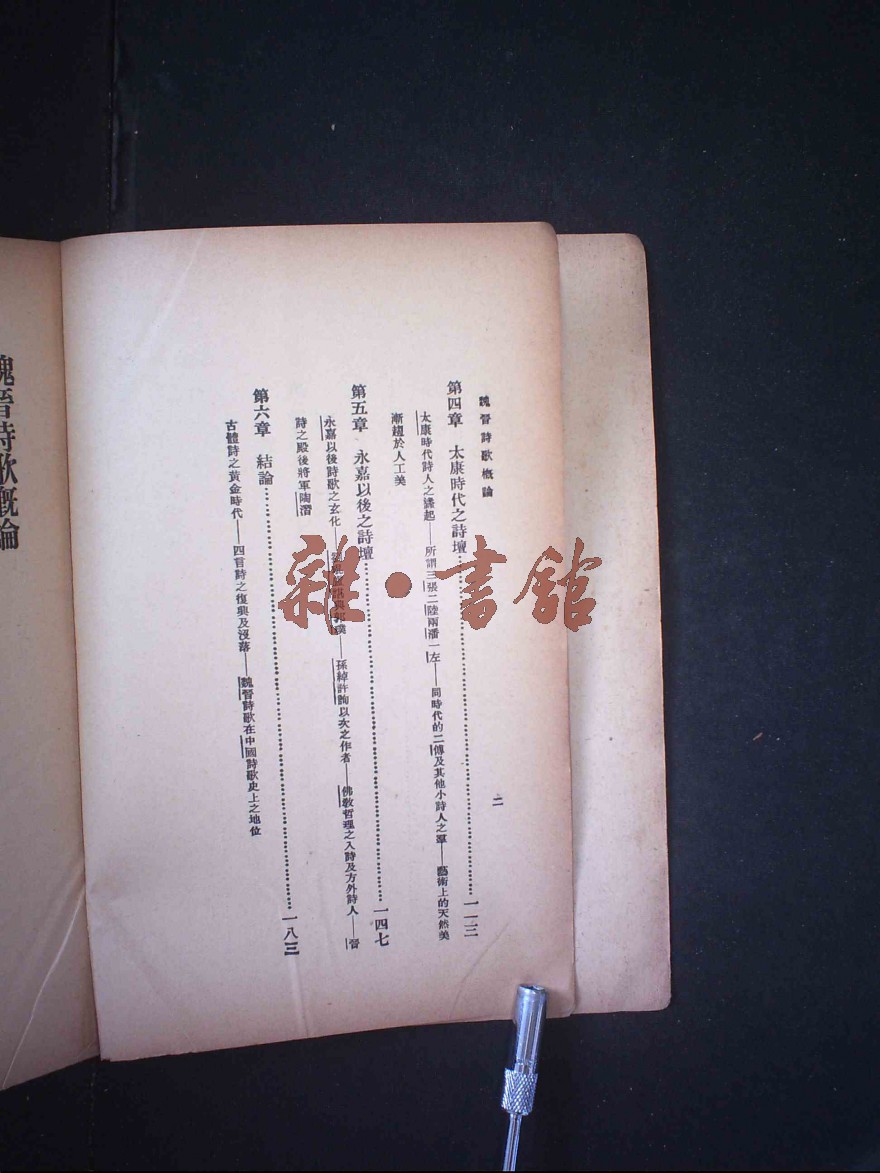 魏晉詩歌概論
二
第四章 太康時代之詩壇 一一三
太康時代詩人之蠭起——所謂三張二陸兩潘一左——同時代的二傅及其他小詩人之羣——藝術上的天然美
漸趨於人工美
第五章 永嘉以後之詩壇 一四七
永嘉以後詩歌之玄化——與郭璞——孫綽許詢以次之作者——佛教哲理之入詩及方外詩人——晉
詩之殿後將軍陶潛
第六章 結論 一八三
古體詩之黃金時代——四言詩之復興及沒落——魏晉詩歌在中國詩歌史上之地位
魏晉詩歌概論
雜·書館